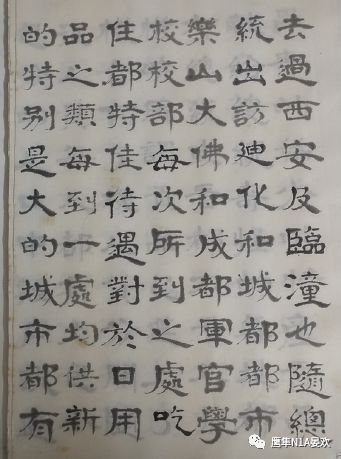 去過西安及臨潼也隨總
統出訪迪化和城都都市
樂山大佛和成都軍官學
校校部每次所到之處吃
住都特佳待遇對於日用
品之類每到一處均供新
的特别是大的城市都有
鹰隼N1A晏欢